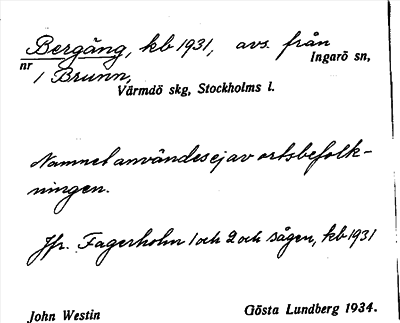 Bergäng, kb 1931, avs. från
Ingarö sn,
nr 1 Brunn,
Värmdö skg, Stockholms l.
Namnet användes ej av ortsbefolk-
ningen.
Jfr. Fagerholm 1 och 2 och sågen, kb 1931
John Westin
Gösta Lundberg 1934.